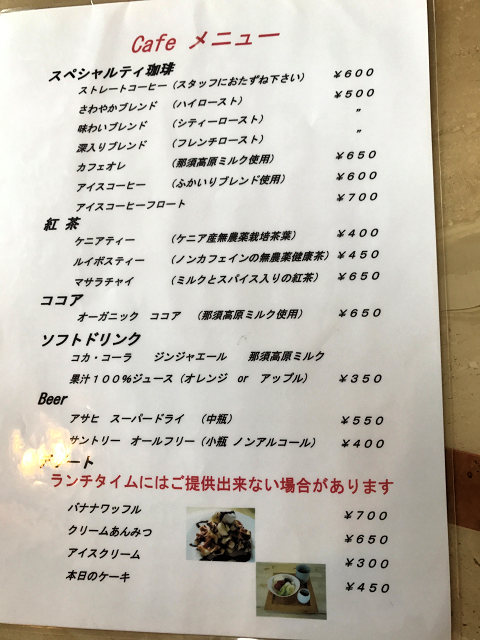 Cafe メニュー
スペシャルティ珈琲
ストレートコーヒー（スタッフにおたずね下さい） ￥６００
さわやかブレンド （ハイロースト） ￥５００
味わいブレンド （シティーロースト） 〃
深入りブレンド （フレンチロースト） 〃
カフェオレ （那須高原ミルク使用） ￥６５０
アイスコーヒー （ふかいりブレンド使用） ￥６００
アイスコーヒーフロート ￥７００
紅 茶
ケニアティー （ケニア産無農薬栽培茶葉） ￥４００
ルイボスティー （ノンカフェインの無農薬健康茶） ￥４５０
マサラチャイ （ミルクとスパイス入りの紅茶） ￥６５０
ココア
オーガニック ココア （那須高原ミルク使用） ￥６５０
ソフトドリンク
コカ・コーラ ジンジャエール 那須高原ミルク
果汁１００％ジュース（オレンジ or アップル） ￥３５０
Beer
アサヒ スーパードライ （中瓶） ￥５５０
サントリー オールフリー（小瓶 ノンアルコール） ￥４００
デザート
ランチタイムにはご提供出来ない場合があります
バナナワッフル ￥７００
クリームあんみつ ￥６５０
アイスクリーム ￥３００
本日のケーキ ￥４５０